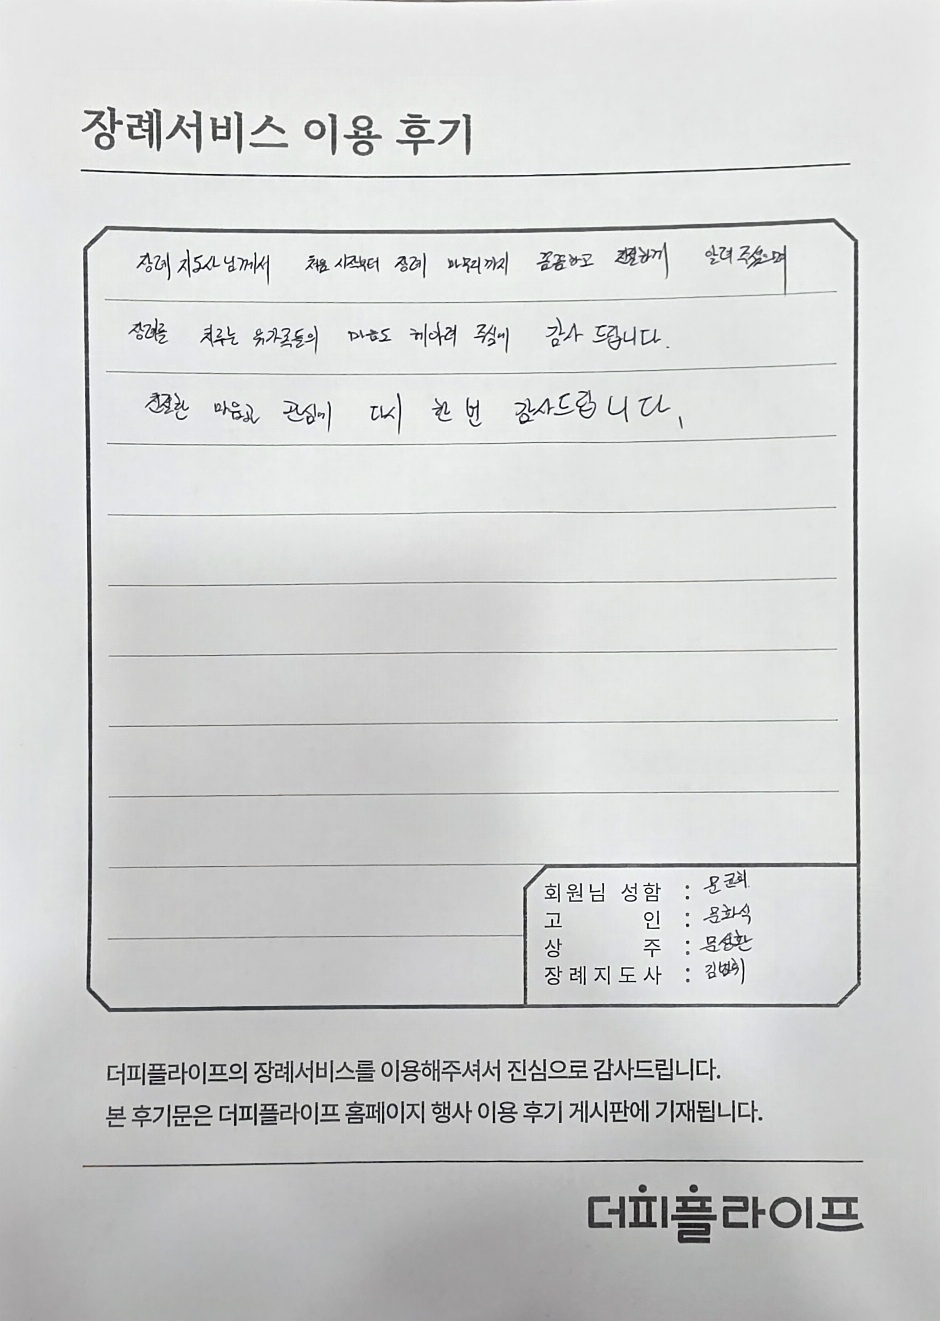 장례서비스 이용 후기
장례 지도사님께서 처음 시작부터 장례 마무리까지 꼼꼼하고 친절하게 알려 주셨으며
장례를 치루는 유가족들의 마음도 헤아려 주심에 감사 드립니다.
친절한 마음과 관심에 다시 한 번 감사드립니다.
회원님 성함 : 문군희
고 인 : 문화식
상 주 : 문성환
장례지도사 : 김범휘
더피플라이프의 장례서비스를 이용해주셔서 진심으로 감사드립니다.
본 후기문은 더피플라이프 홈페이지 행사 이용 후기 게시판에 기재됩니다.
더피플라이프